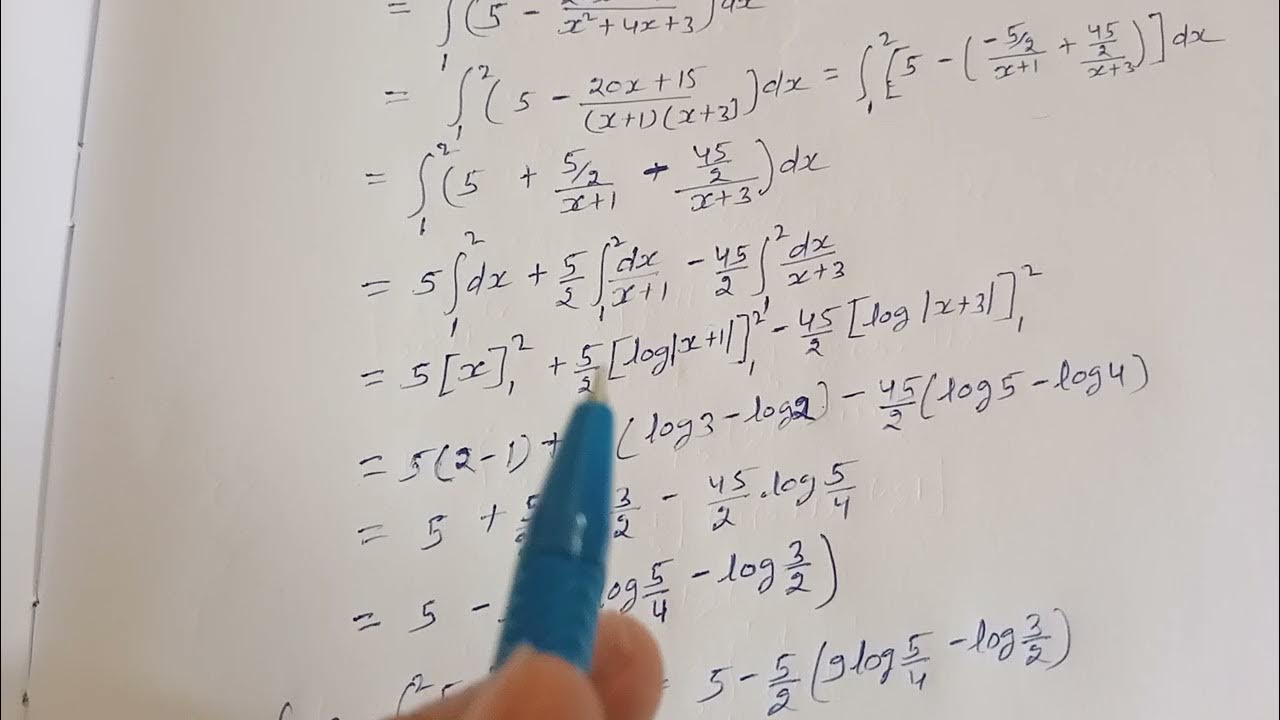 = ∫₁ (5 − /(x²+4x+3)) dx
= ∫₁² (5 − (20x+15)/((x+1)(x+3])) dx = ∫₁² [5 − ((−5/2)/(x+1) + (45/2)/(x+3))] dx
= ∫₁² (5 + (5/2)/(x+1) − (45/2)/(x+3)) dx
= 5∫₁² dx + 5/2 ∫₁² dx/(x+1) − 45/2 ∫₁² dx/(x+3)
= 5[x]₁² + 5/2 [log|x+1|]₁² − 45/2 [log|x+3|]₁²
= 5(2−1) + (log3 − log2) − 45/2 (log5 − log4)
= 5 + 3/2 − 45/2 . log 5/4
= 5 − log 5/4 − log 3/2)
= 5 − 5/2 (9log 5/4 − log 3/2)